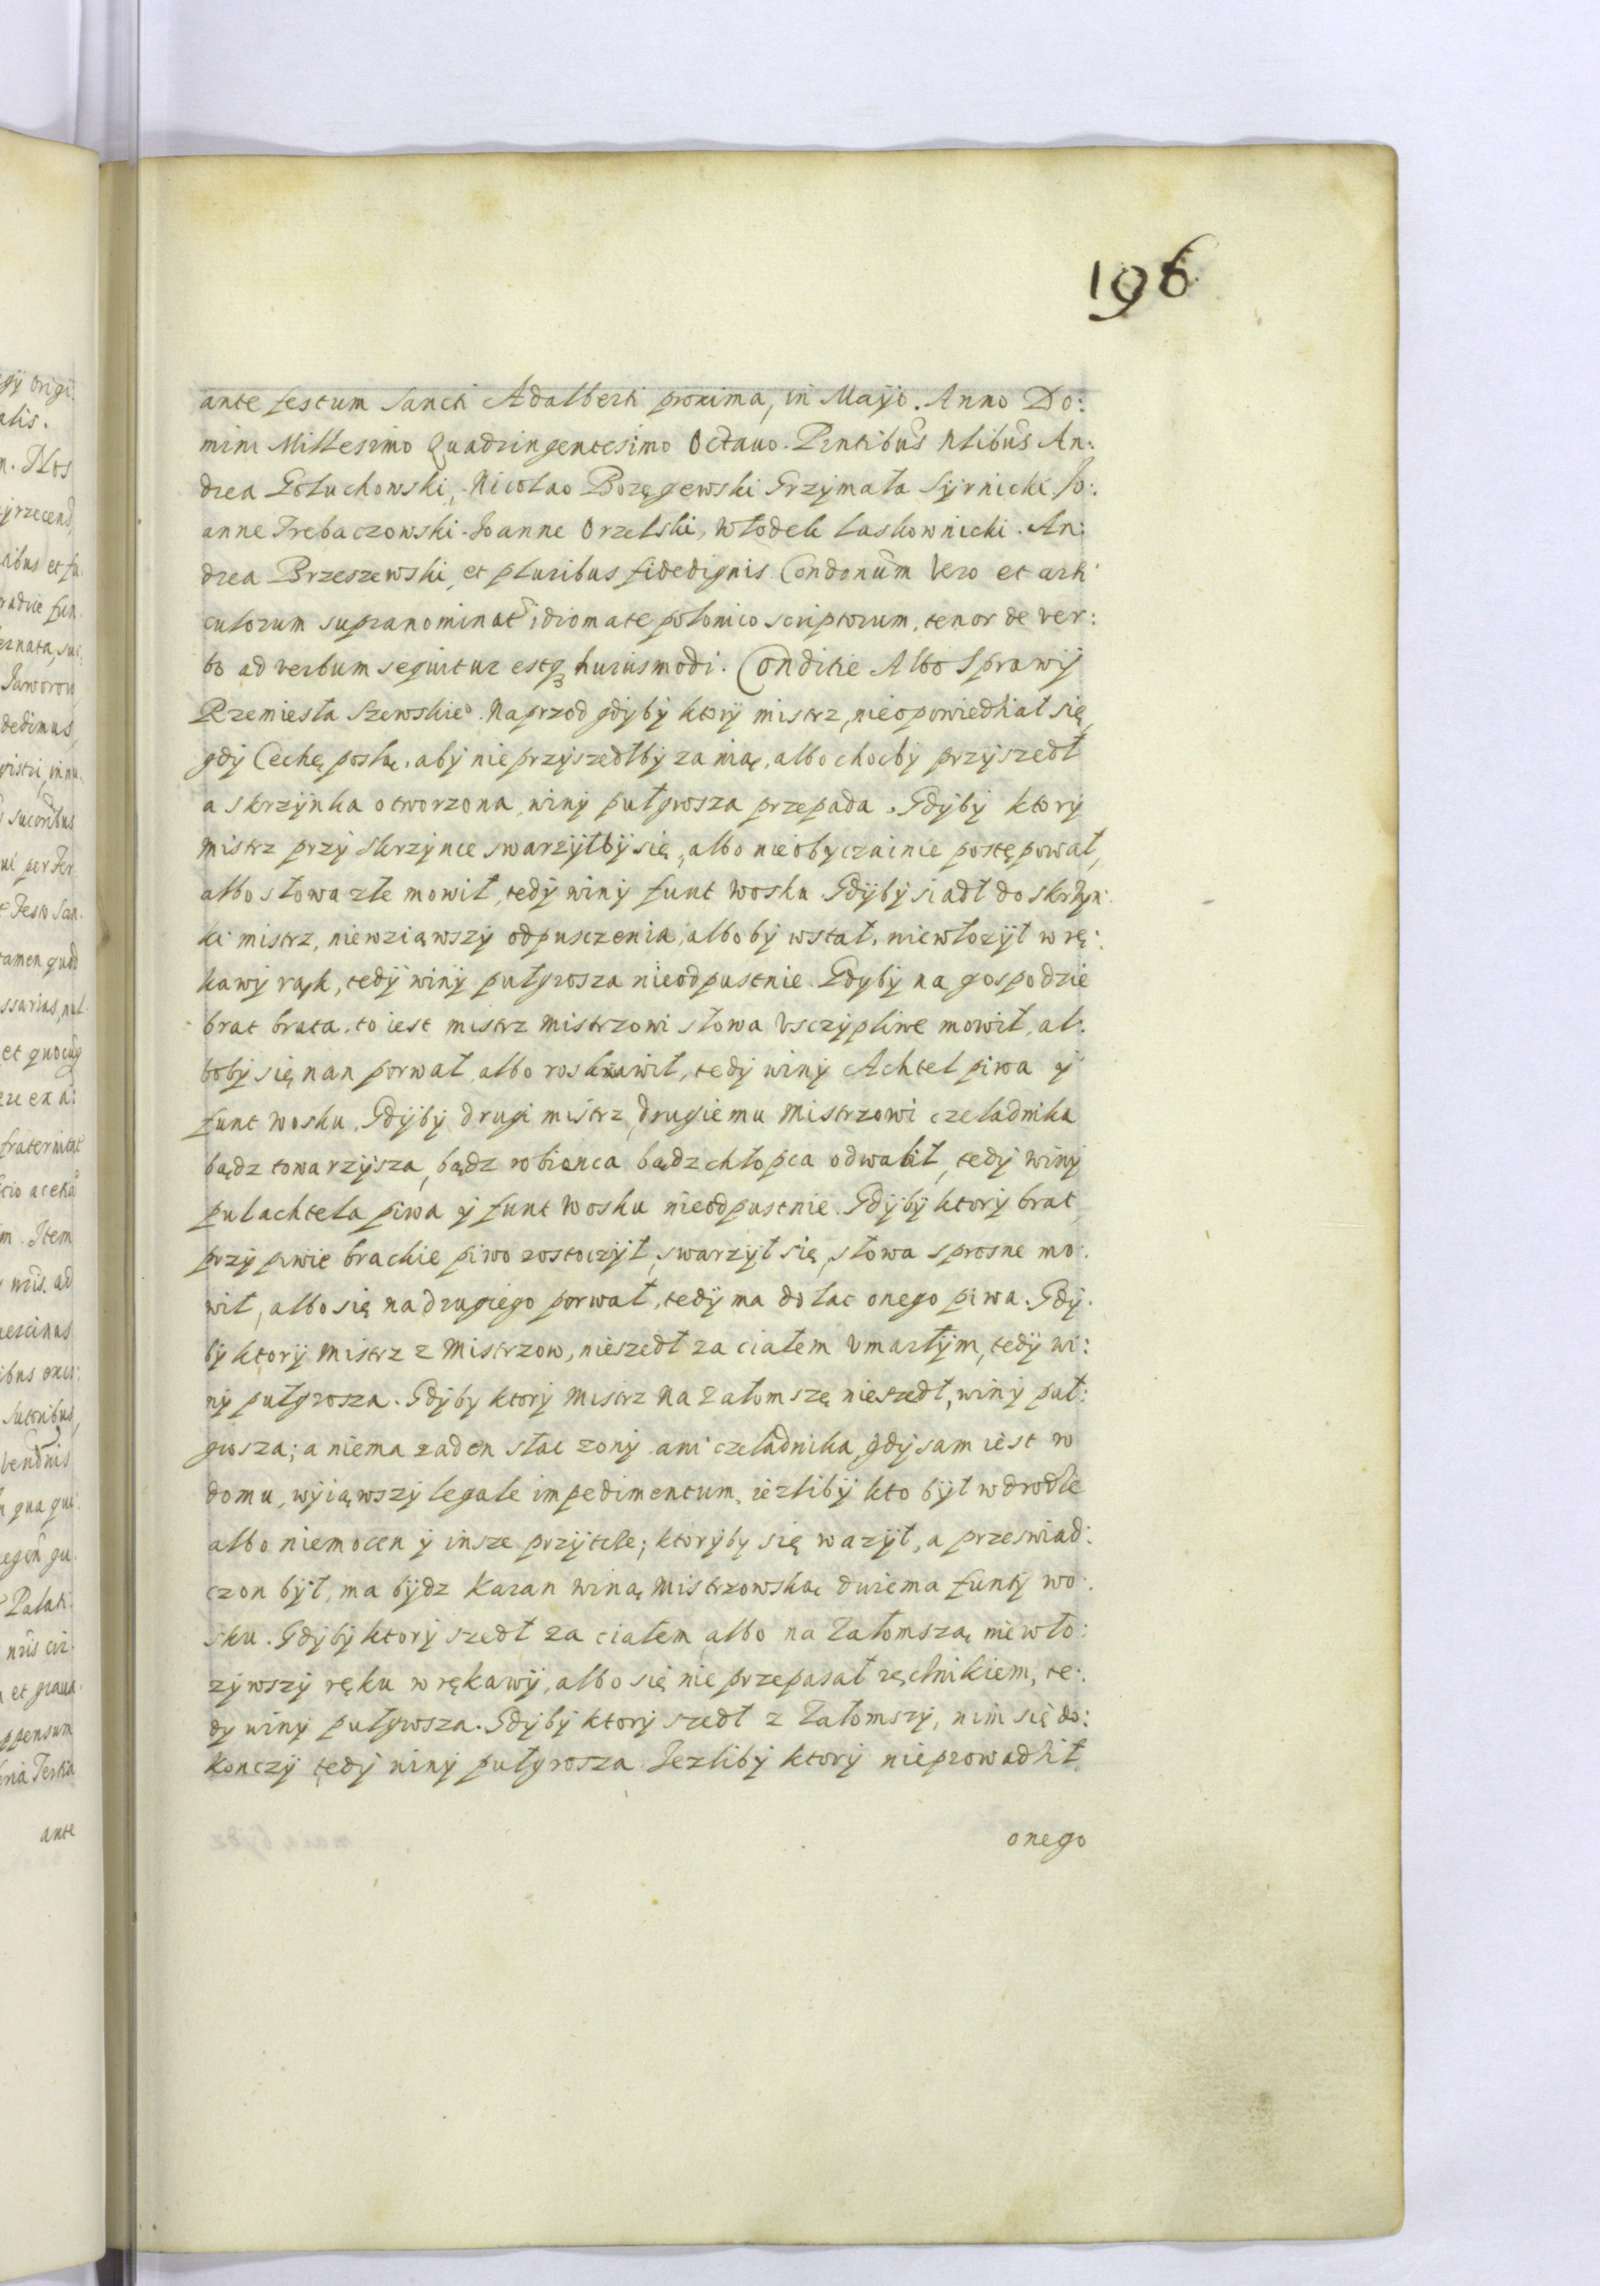 196
ante festum Sancti Adalberti proxima, in Mayo. Anno Do:
mini Millesimo Quadringentesimo Octauo. Pntibus Nlibus An:
drea Goluchowski, Nicolao Bozęgewski Grzymała Syrnicki Jo:
anne Trebaczowski. Joanne Orzelski, Włodek Laskownicki. An:
drea Brzeszewski, et pluribus fidedignis. Condonum Vero et arti
culorum supranominat idiomate polonico scriptorum, tenor de ver:
bo ad verbum sequitur estq huiusmodi. Conditie Albo Sprawy
Rzemiesła Szewskieo. Naprzod gdyby ktory mistrz, nieopowiedział się,
gdy Cechę poslą, aby nie przyszedłby za nią, albo chocby przyszedł
a skrzynka otworzona, winy pułgrosza przepada. Gdyby ktory
mistrz przy skrzynce swarzyłby się, albo nieobyczainie postępował,
albo słowa złe mowił, tedy winy funt wosku. Gdyby siadł do skrzyn:
ki mistrz, niewziąwszy odpusczenia, alboby wstał, niewłozył w rę:
kawy rąk, tedy winy pułgrosza nieodpustnie. Gdyby na gospodzie
brat brata, to iest mistrz mistrzowi słowa Vsczypliwe mowił, al:
boby się nan porwał, albo roskrawił, tedy winy Achtel piwa y
funt wosku. Gdyby drugi mistrz, drugiemu Mistrzowi czeladnika
bądz towarzysza, bądz robienca bądz chłopca odwabił, tedy winy
pulachtela piwa y funt wosku nieodpustnie. Gdyby ktory brat,
przy piwie brackie piwo rostoczył, swarzył się, słowa sprosne mo:
wił, albo się na drugiego porwał, tedy ma dolac onego piwa. Gdy:
by ktory Mistrz z Mistrzow, nieszedł za ciałem Vmarłym, tedy wi:
ny pułgrosza. Gdyby ktory Mistrz na Załomszę nieszedł, winy puł:
grosza; a niema zaden słac zony ani czeladnika, gdy sam iest w
domu, wyiąwszy legale impedimentum, iezliby kto był w drodze
albo niemocen y insze przytcze; ktoryby się wazył, a przeswiad:
czon był, ma bydz karan winą Mistrzowską dwiema funty wo:
sku. Gdyby ktory szedł za ciałem albo na Załomszą, nie wło:
zywszy ręku w rękawy, albo się nie przepasał ręcznikiem, te:
dy winy pułgrosza. Gdyby ktory szedł z Załomszy, nim się do:
konczy tedy winy pułgrosza. Jezliby ktory nieprowadził
onego
ante